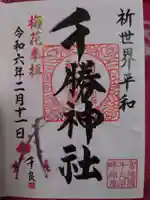 祈世界平和
千勝神社
梅花奉拝
令和六年二月十一日